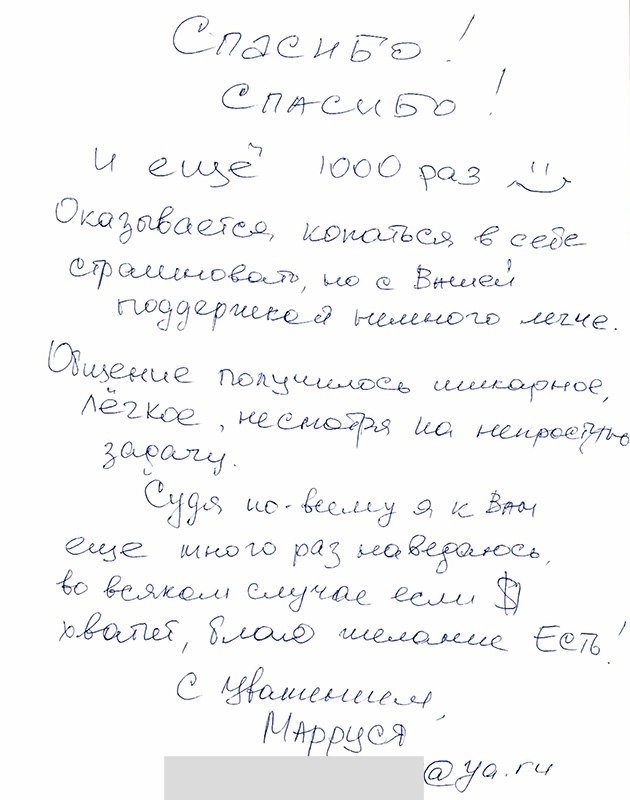 Спасибо!
Спасибо!
И ещё 1000 раз
Оказывается, копаться в себе
страшновато, но с Вашей
поддержкой немного легче.
Общение получилось шикарное,
лёгкое, несмотря на непростую
задачу.
Судя по-всему я к Вам
еще много раз наведаюсь,
во всяком случае если $
хватит, благо желание ЕСТЬ!
С уважением,
Марруся
@ya.ru